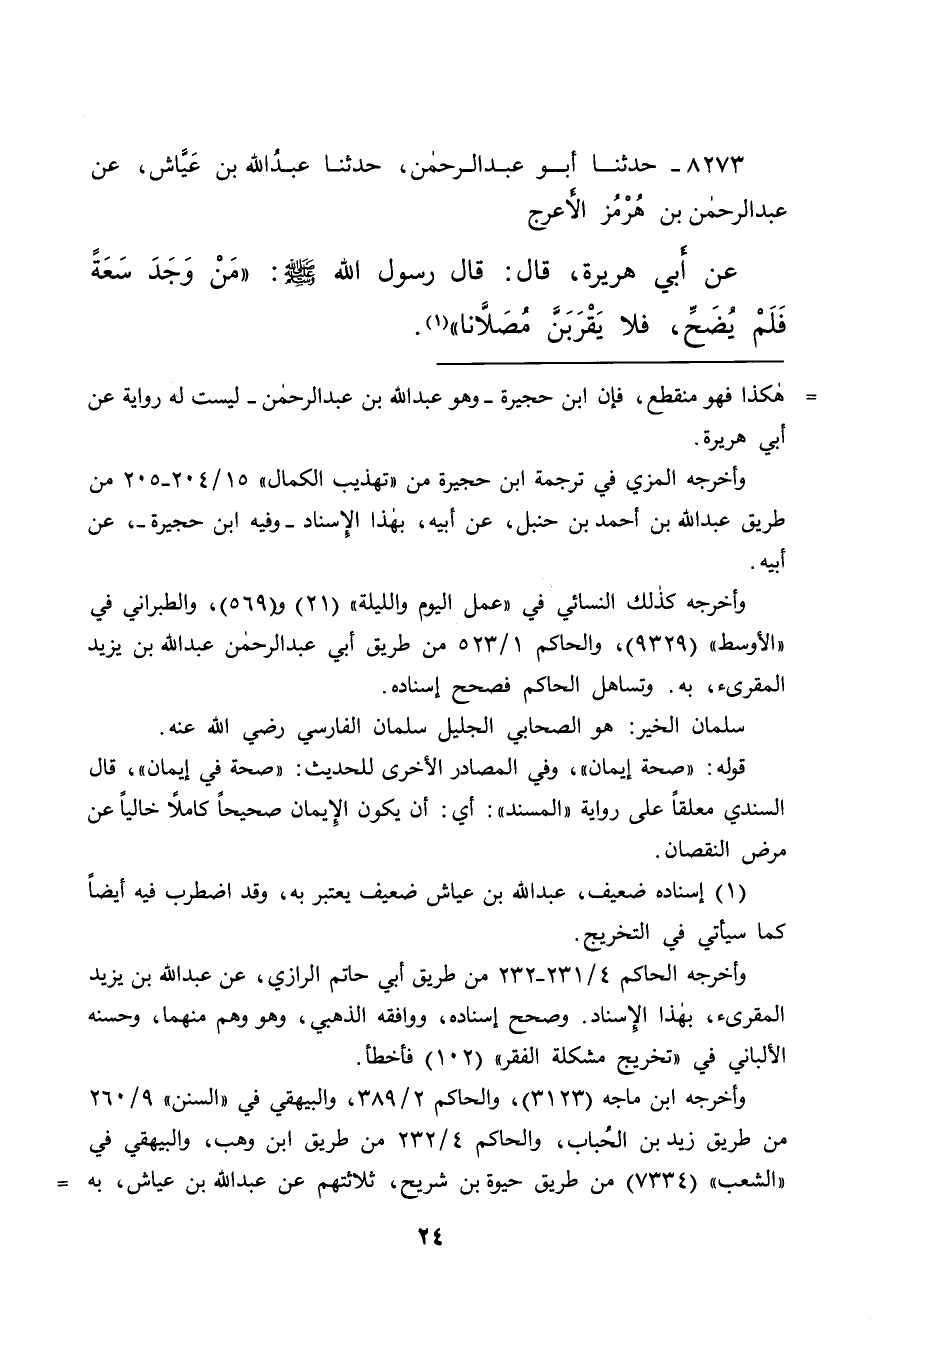 ٨٢٧٣ ـ حدثنا أبو عبدالرحمٰن، حدثنا عبدُالله بن عَيَّاش، عن
عبدالرحمٰن بن هُرْمُز الأَعرج
عن أَبي هريرة، قال: قال رسول الله ﷺ: «مَنْ وَجَدَ سَعَةً
فَلَمْ يُضَحِّ، فلا يَقْرَبَنَّ مُصَلَّانا»(١).
= هٰكذا فهو منقطع، فإن ابن حجيرة ـ وهو عبدالله بن عبدالرحمٰن ـ ليست له رواية عن
أبي هريرة.
وأخرجه المزي في ترجمة ابن حجيرة من «تهذيب الكمال» ٢٠٤/١٥ـ٢٠٥ من
طريق عبدالله بن أحمد بن حنبل، عن أبيه، بهٰذا الإسناد ـ وفيه ابن حجيرة ـ، عن
أبيه.
وأخرجه كذٰلك النسائي في «عمل اليوم والليلة» (٢١) و(٥٦٩)، والطبراني في
«الأوسط» (٩٣٢٩)، والحاكم ٥٢٣/١ من طريق أبي عبدالرحمٰن عبدالله بن يزيد
المقرىء، به. وتساهل الحاكم فصحح إسناده.
سلمان الخير: هو الصحابي الجليل سلمان الفارسي رضي الله عنه.
قوله: «صحة إيمان»، وفي المصادر الأخرى للحديث: «صحة في إيمان»، قال
السندي معلقاً على رواية «المسند»: أي: أن يكون الإيمان صحيحاً كاملاً خالياً عن
مرض النقصان.
(١) إسناده ضعيف، عبدالله بن عياش ضعيف يعتبر به، وقد اضطرب فيه أيضاً
كما سيأتي في التخريج.
وأخرجه الحاكم ٢٣١/٤ـ٢٣٢ من طريق أبي حاتم الرازي، عن عبدالله بن يزيد
المقرىء، بهٰذا الإسناد. وصحح إسناده، ووافقه الذهبي، وهو وهم منهما، وحسنه
الألباني في «تخريج مشكلة الفقر» (١٠٢) فأخطأ.
وأخرجه ابن ماجه (٣١٢٣)، والحاكم ٣٨٩/٢، والبيهقي في «السنن» ٢٦٠/٩
من طريق زيد بن الحُباب، والحاكم ٢٣٢/٤ من طريق ابن وهب، والبيهقي في
«الشعب» (٧٣٣٤) من طريق حيوة بن شريح، ثلاثتهم عن عبدالله بن عياش، به =
٢٤